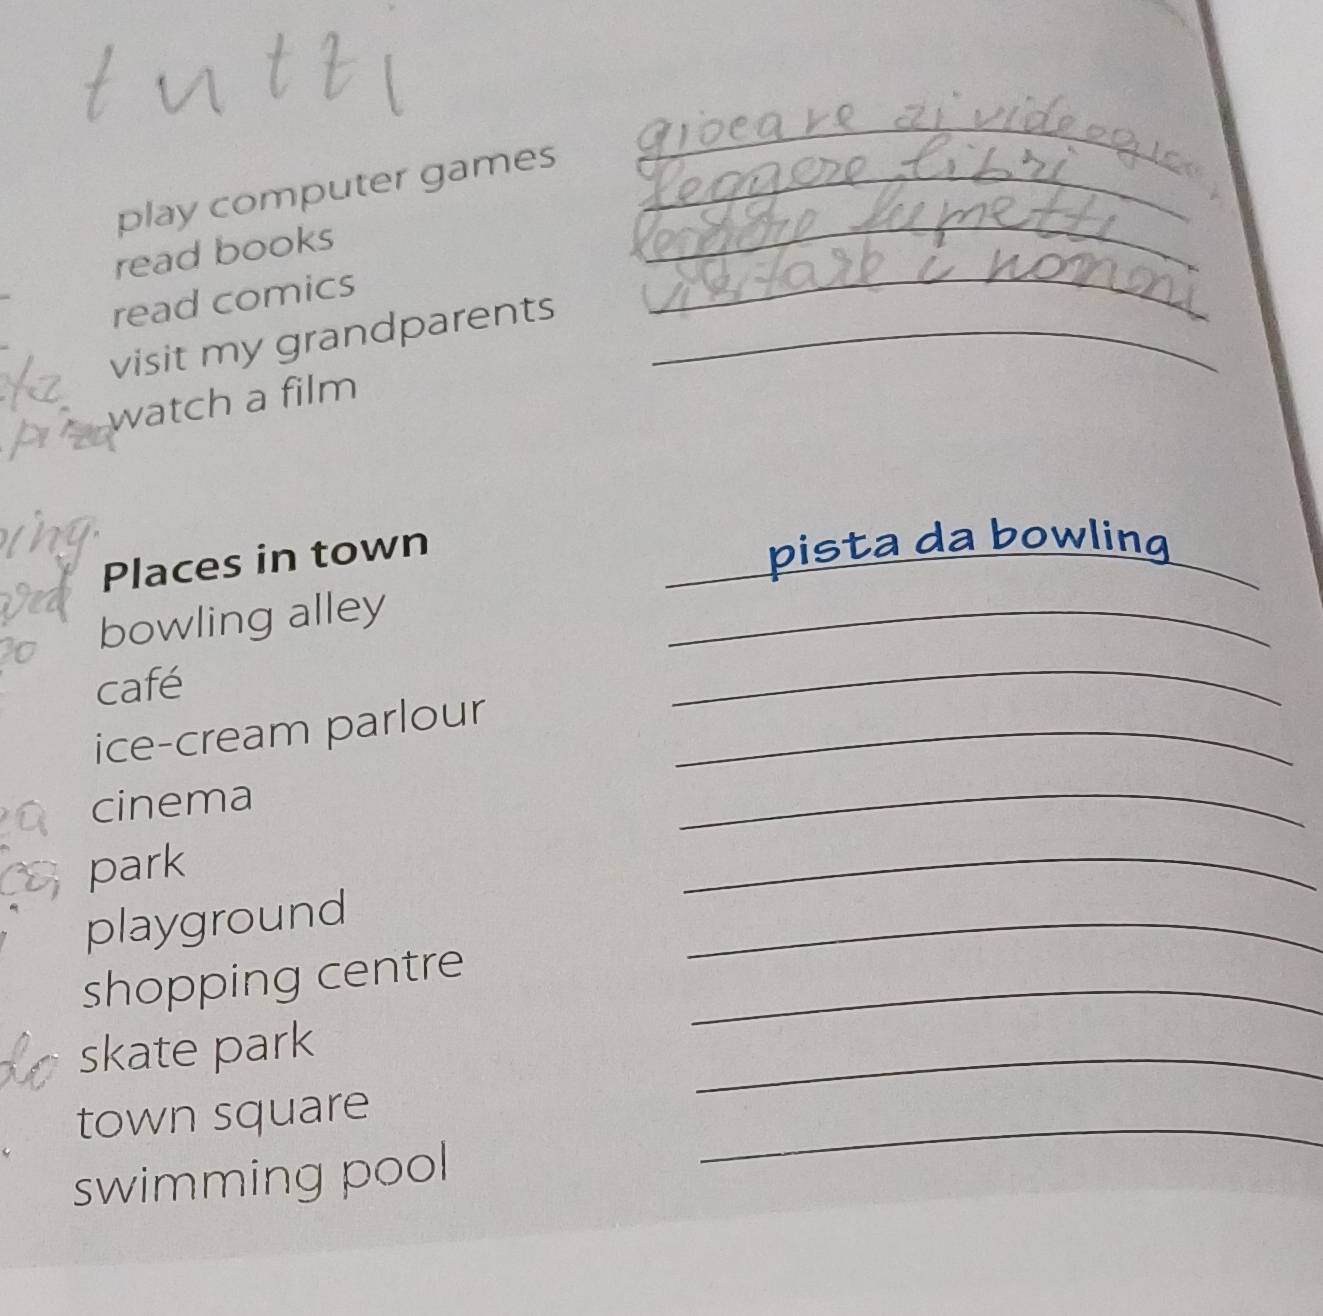 tutti
play computer games
read books leggere libri
read comics leggere fumetti
visit my grandparents visitare i nonni
watch a film
Places in town
bowling alley pista da bowling
café
ice-cream parlour
cinema
park
playground
shopping centre
skate park
town square
swimming pool